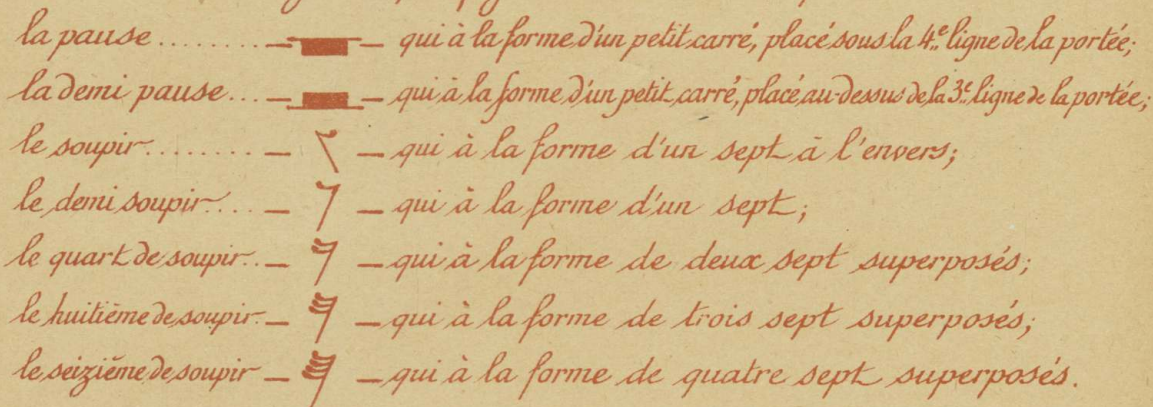 la pause ........ — — qui à la forme d'un petit carré, placé sous la 4e ligne de la portée;
la demi pause ... — — qui à la forme d'un petit carré, placé au-dessus de la 3e ligne de la portée;
le soupir ......... — — qui à la forme d'un sept à l'envers;
le demi soupir .... — — qui à la forme d'un sept;
le quart de soupir .. — — qui à la forme de deux sept superposés;
le huitième de soupir . — — qui à la forme de trois sept superposés;
le seizième de soupir — — qui à la forme de quatre sept superposés.